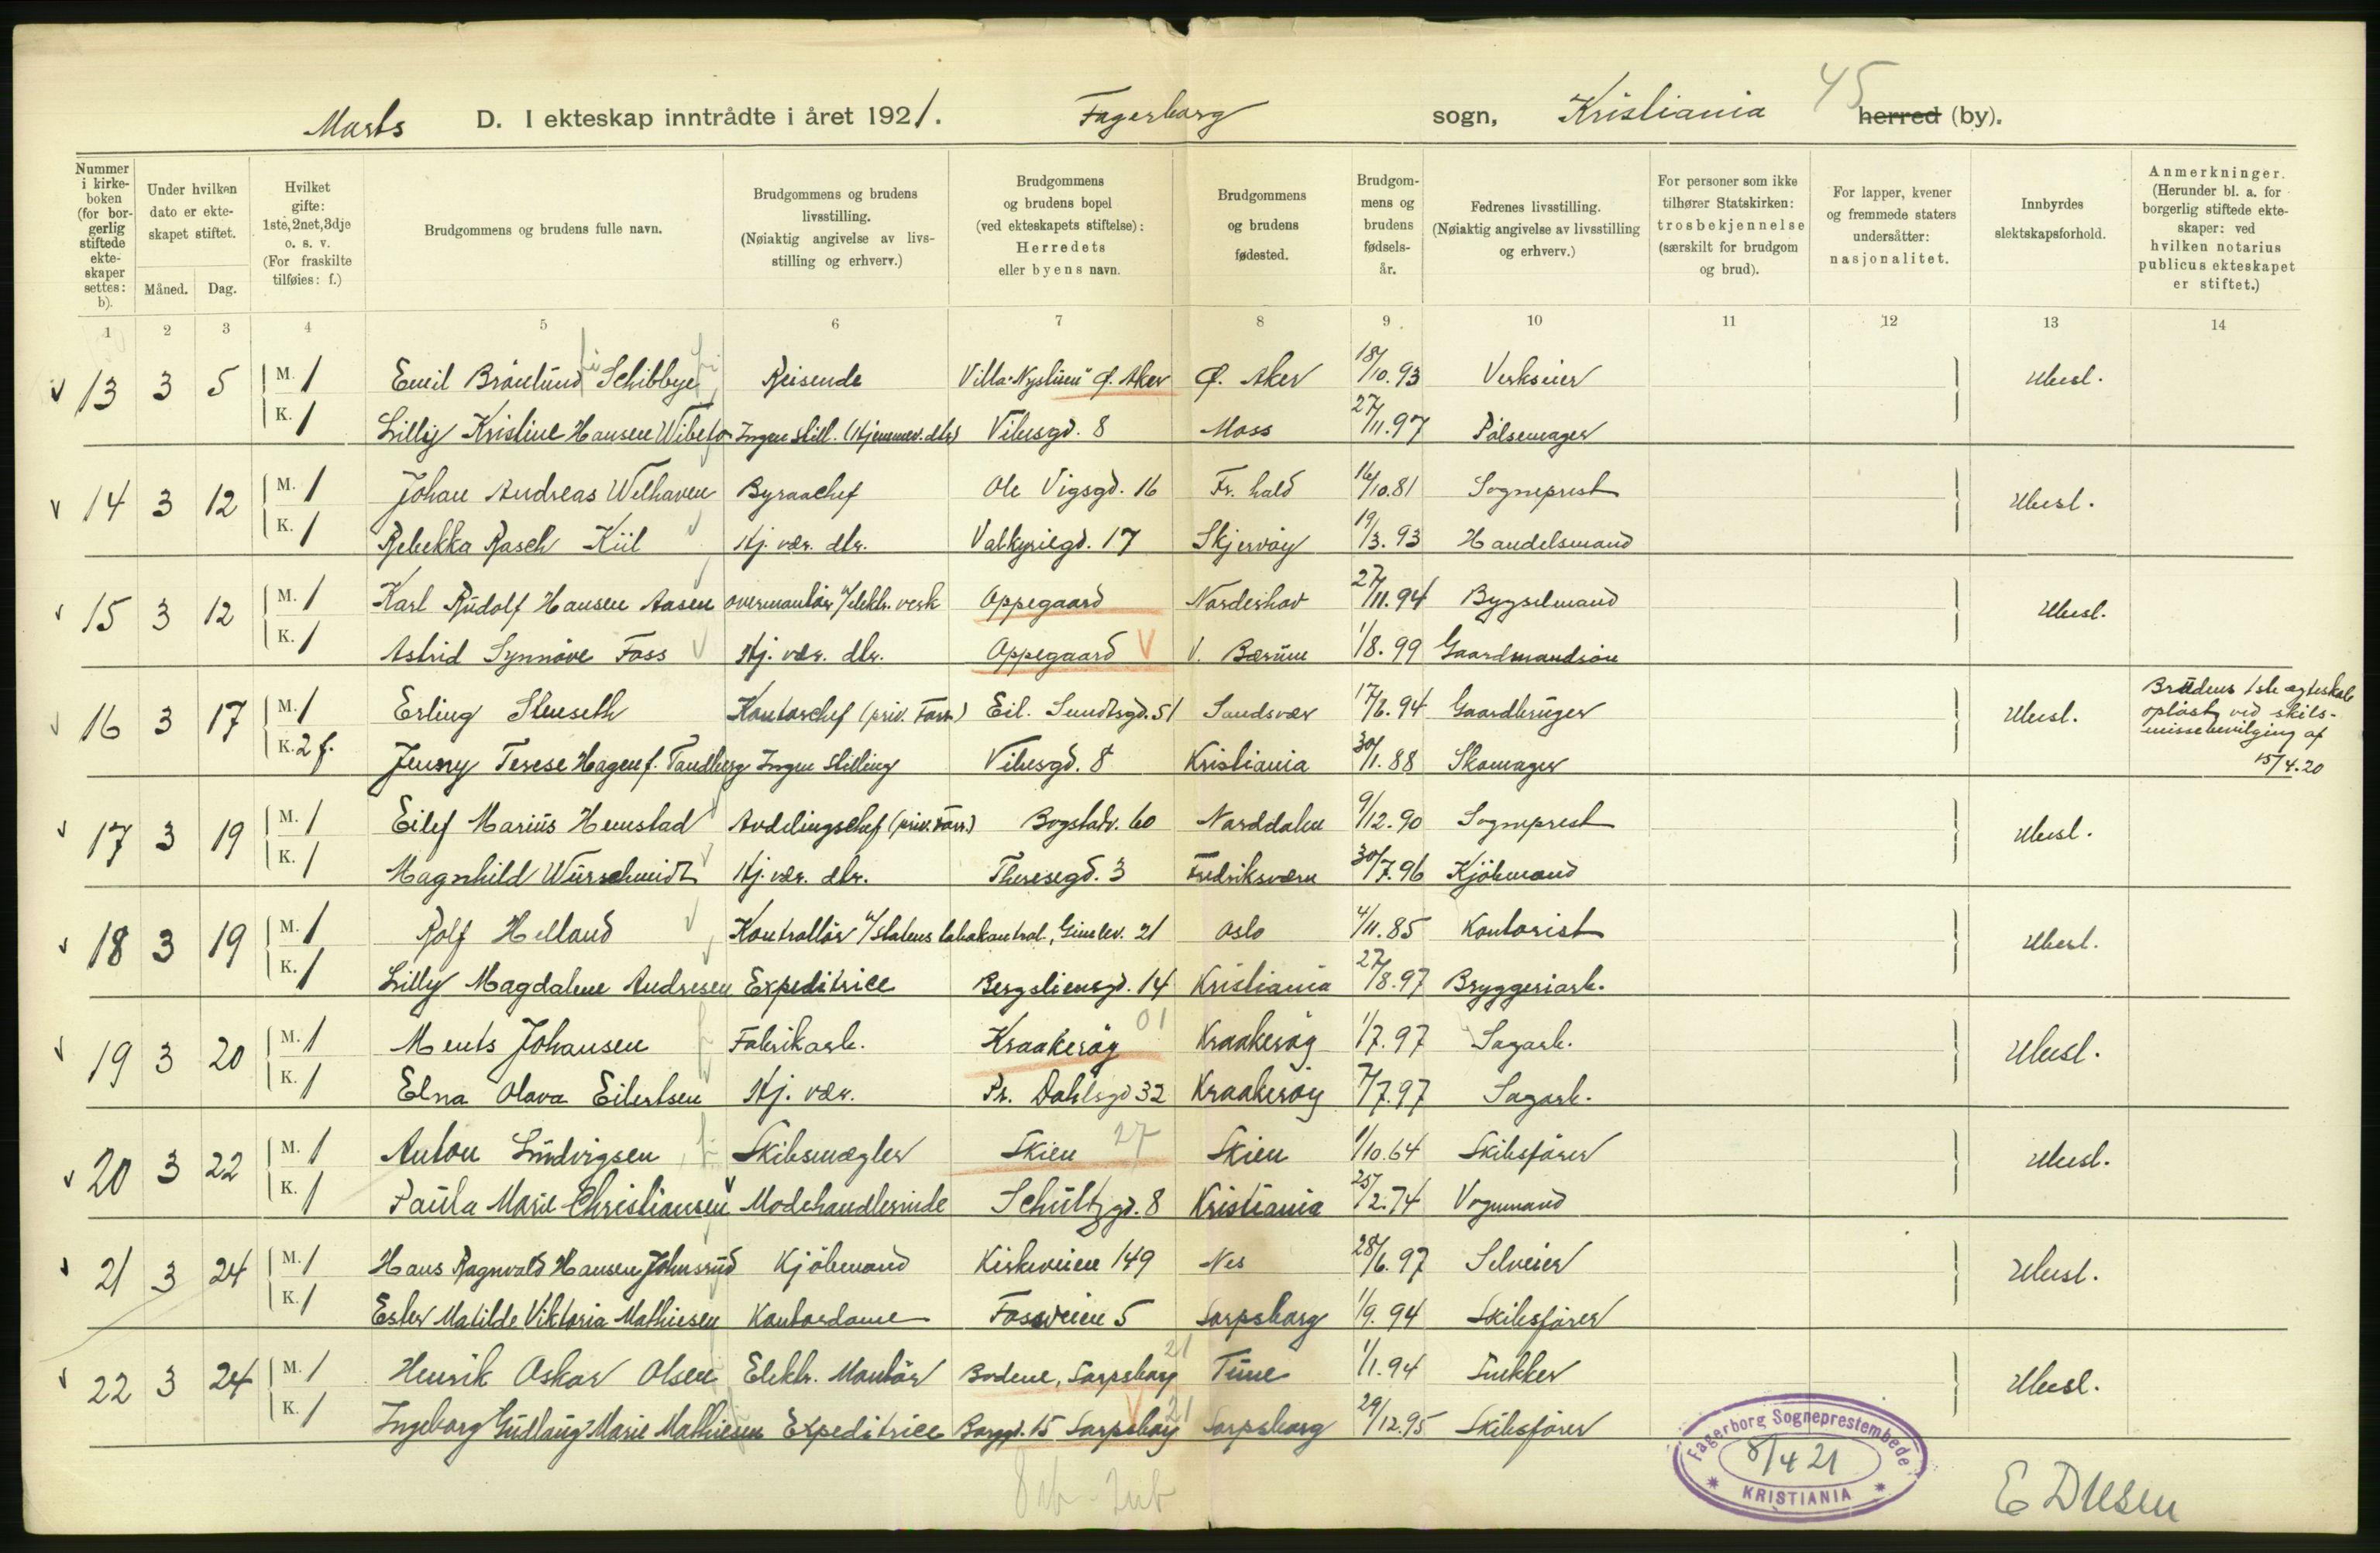 45
Marts D. I ekteskap inntrådte i året 1921. Fagerborg sogn, Kristiania herred (by).
Nummer i kirke-boken (for bor-gerlig stiftede ekte-skaper settes: b).
Under hvilken dato er ekte-skapet stiftet.
Måned. Dag.
Hvilket gifte: 1ste, 2net, 3dje o. s. v. (For fraskilte tilføies: f.)
Brudgommens og brudens fulle navn.
Brudgommens og brudens livsstilling. (Nøiaktig angivelse av livs-stilling og erhverv.)
Brudgommens og brudens bopel (ved ekteskapets stiftelse): Herredets eller byens navn.
Brudgommens og brudens fødested.
Brudgom-mens og brudens fødsels-år.
Fedrenes livsstilling. (Nøiaktig angivelse av livsstilling og erhverv.)
For personer som ikke tilhører Statskirken: trosbekjennelse (særskilt for brudgom og brud).
For lapper, kvener og fremmede staters undersåtter: nasjonalitet.
Innbyrdes slektskapsforhold.
Anmerkninger. (Herunder bl. a. for borgerlig stiftede ekte-skaper: ved hvilken notarius publicus ekteskapet er stiftet.)
1 2 3 4 5 6 7 8 9 10 11 12 13 14
13 3 5 M. 1 Emil Brönlund Schibbye Reisende Villa "Nyslüen" Ø. Aker Ø. Aker 18/10.93 Verkseier Ubesl.
K. 1 Lilly Kristine Hansen Wibeto Ingen still. (Hjemmev. dtr) Vibesgd. 8 Moss 27/11.97 Pölsemager
14 3 12 M. 1 Johan Andreas Welhaven Byraachef Ole Vigsgd. 16 Fr. hald 16/10.81 Sogneprest Ubesl.
K. 1 Rebekka Rasch Kiil Hj. vær. dtr. Valkyriegd. 17 Skjervöy 19/3.93 Handelsmand
15 3 12 M. 1 Karl Rudolf Hansen Aasen overmontör v/elektr. verk Oppegaard Norderhov 27/11.94 Bygselmand Ubesl.
K. 1 Astrid Synnöve Foss Hj. vær. dtr. Oppegaard V. Bærum 1/8.99 Gaardmandsön
16 3 17 M. 1 Erling Stenseth Kontorchef (priv. Forr.) Eil. Sundtsgd. 51 Sandsvær 17/8.94 Gaardbruger Ubesl. Brudens 1ste ægteskab
opløst ved skils-
missebevilging af
15/4.20
K. 2 f. Jenny Terese Hagen f. Tandberg Ingen stilling Vibesgd. 8 Kristiania 30/1.88 Skomager
17 3 19 M. 1 Eilef Marius Hemstad Avdelingschef (priv. Forr.) Bogstadv. 60 Norddalen 9/12.90 Sogneprest Ubesl.
K. 1 Magnhild Würschmidt Hj. vær. dtr. Theresegd. 3 Fredriksværn 30/7.96 Kjöbmand
18 3 19 M. 1 Rolf Helland Kontrollör v/Statens tobakontrol., Gimlev. 21 Oslo 4/11.85 Kontorist Ubesl.
K. 1 Lilly Magdalene Andresen Expeditrice Bergsliensgd. 14 Kristiania 27/8.97 Bryggeriarb.
19 3 20 M. 1 Ments Johansen Fabrikarb. Kraakeröy 01 Kraakeröy 1/7.97 Sagarb. Ubesl.
K. 1 Elna Olava Eilertsen Hj. vær. Pr. Dahlsgd 32 Kraakeröy 7/7.97 Sagarb.
20 3 22 M. 1 Anton Ludvigsen Skibsmægler Skien 27 Skien 1/10.64 Skibsförer Ubesl.
K. 1 Paula Marie Christiansen Modehandlerinde Schultzgd. 8 Kristiania 25/2.74 Vognmand
21 3 24 M. 1 Hans Ragnvald Hansen Johnsrud Kjöbmand Kirkeveien 149 Nes 28/6.97 Selveier Ubesl.
K. 1 Ester Matilde Viktoria Mathiesen Kontordame Fossveien 5 Sarpsborg 1/9.94 Skibsförer
22 3 24 M. 1 Henrik Oskar Olsen Elektr. Montör Bodene, Sarpsborg 21 Tune 1/1.94 Snekker Ubesl.
K. 1 Ingeborg Gudlaug Marie Mathiesen Expeditrice Borggd. 15 Sarpsborg 21 Sarpsborg 29/12.95 Skibsförer
Fagerborg Sogneprestembede
8/4 21
KRISTIANIA